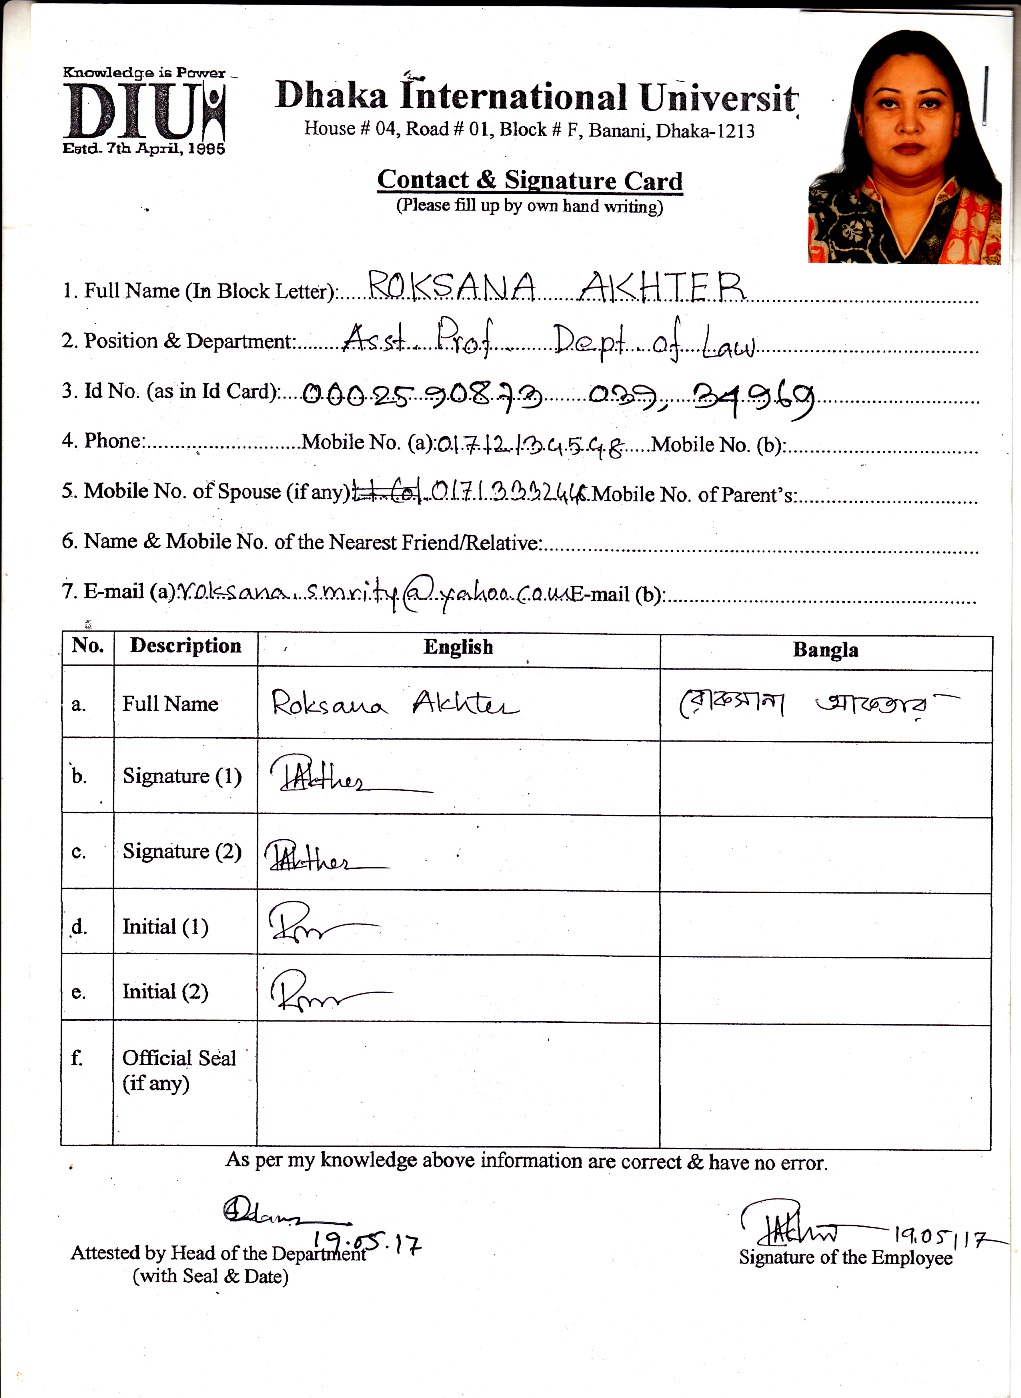 Knowledge is Power
DIU
Estd. 7th April, 1995
Dhaka International Universit
House # 04, Road # 01, Block # F, Banani, Dhaka-1213
Contact & Signature Card
(Please fill up by own hand writing)
1. Full Name (In Block Letter):.....ROKSANA AKHTER
2. Position & Department:........Asst. Prof. Dept. of Law
3. Id No. (as in Id Card):....0002590873 039, 34969
4. Phone:............................Mobile No. (a):01712134548.....Mobile No. (b):
5. Mobile No. of Spouse (if any) 01713332446 Mobile No. of Parent's:
6. Name & Mobile No. of the Nearest Friend/Relative:
7. E-mail (a):roksana.smrity@yahoo.com E-mail (b):
No. Description English Bangla
a. Full Name Roksana Akhter রোকসানা আকতার
b. Signature (1) RAkther
c. Signature (2) RAkther
d. Initial (1)
e. Initial (2)
f. Official Seal
(if any)
As per my knowledge above information are correct & have no error.
19.05.17
Attested by Head of the Department
(with Seal & Date)
19.05.17
Signature of the Employee